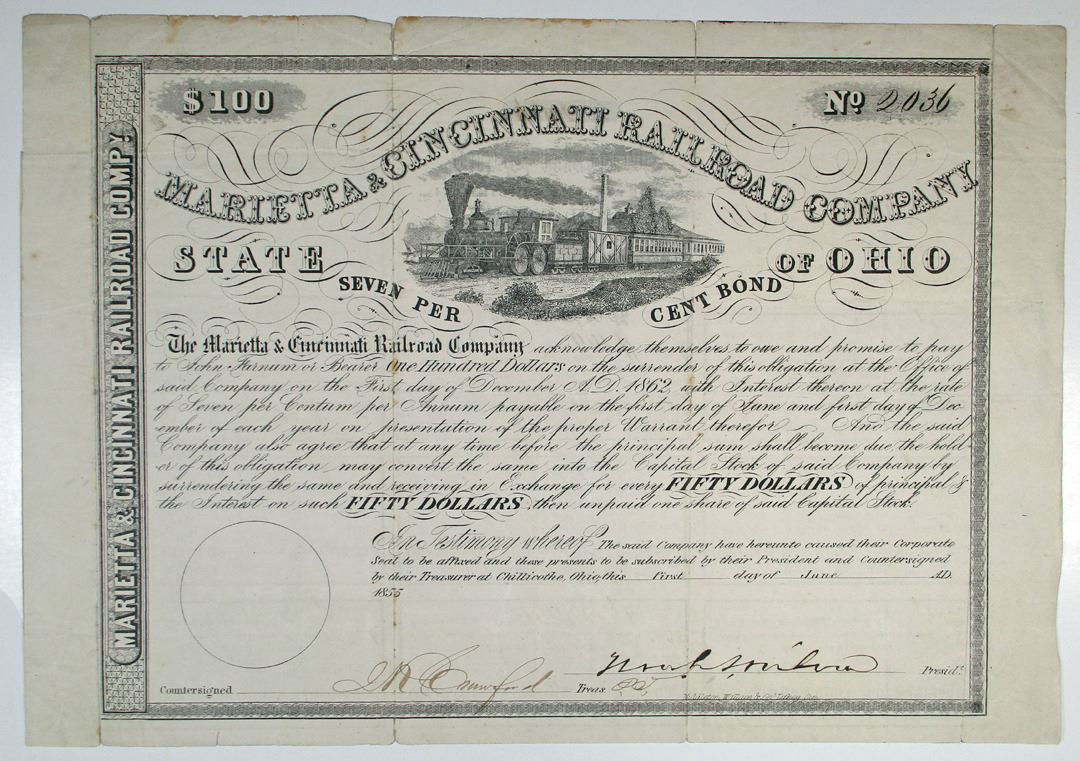 $100
No 2036
MARIETTA & CINCINNATI RAILROAD COMPANY
STATE OF OHIO
SEVEN PER CENT BOND
MARIETTA & CINCINNATI RAILROAD COMPY
The Marietta & Cincinnati Railroad Company acknowledge themselves to owe and promise to pay
to John Farnum or Bearer One Hundred Dollars on the surrender of this obligation at the Office of
said Company on the First day of December A.D. 1862 with Interest thereon at the rate
of Seven per Centum per Annum payable on the first day of June and first day of Dec-
ember of each year on presentation of the proper Warrant therefor And the said
Company also agree that at any time before the principal sum shall become due the hold-
er of this obligation may convert the same into the Capital Stock of said Company by
surrendering the same and receiving in Exchange for every FIFTY DOLLARS of principal &
the Interest on such FIFTY DOLLARS then unpaid one share of said Capital Stock.
In Testimony whereof The said Company have hereunto caused their Corporate
Seal to be affixed and these presents to be subscribed by their President and Countersigned
by their Treasurer at Chillicothe, Ohio, this First day of June AD.
1855
Noah L. Wilson Presidt.
Countersigned J R Crawford Treas.